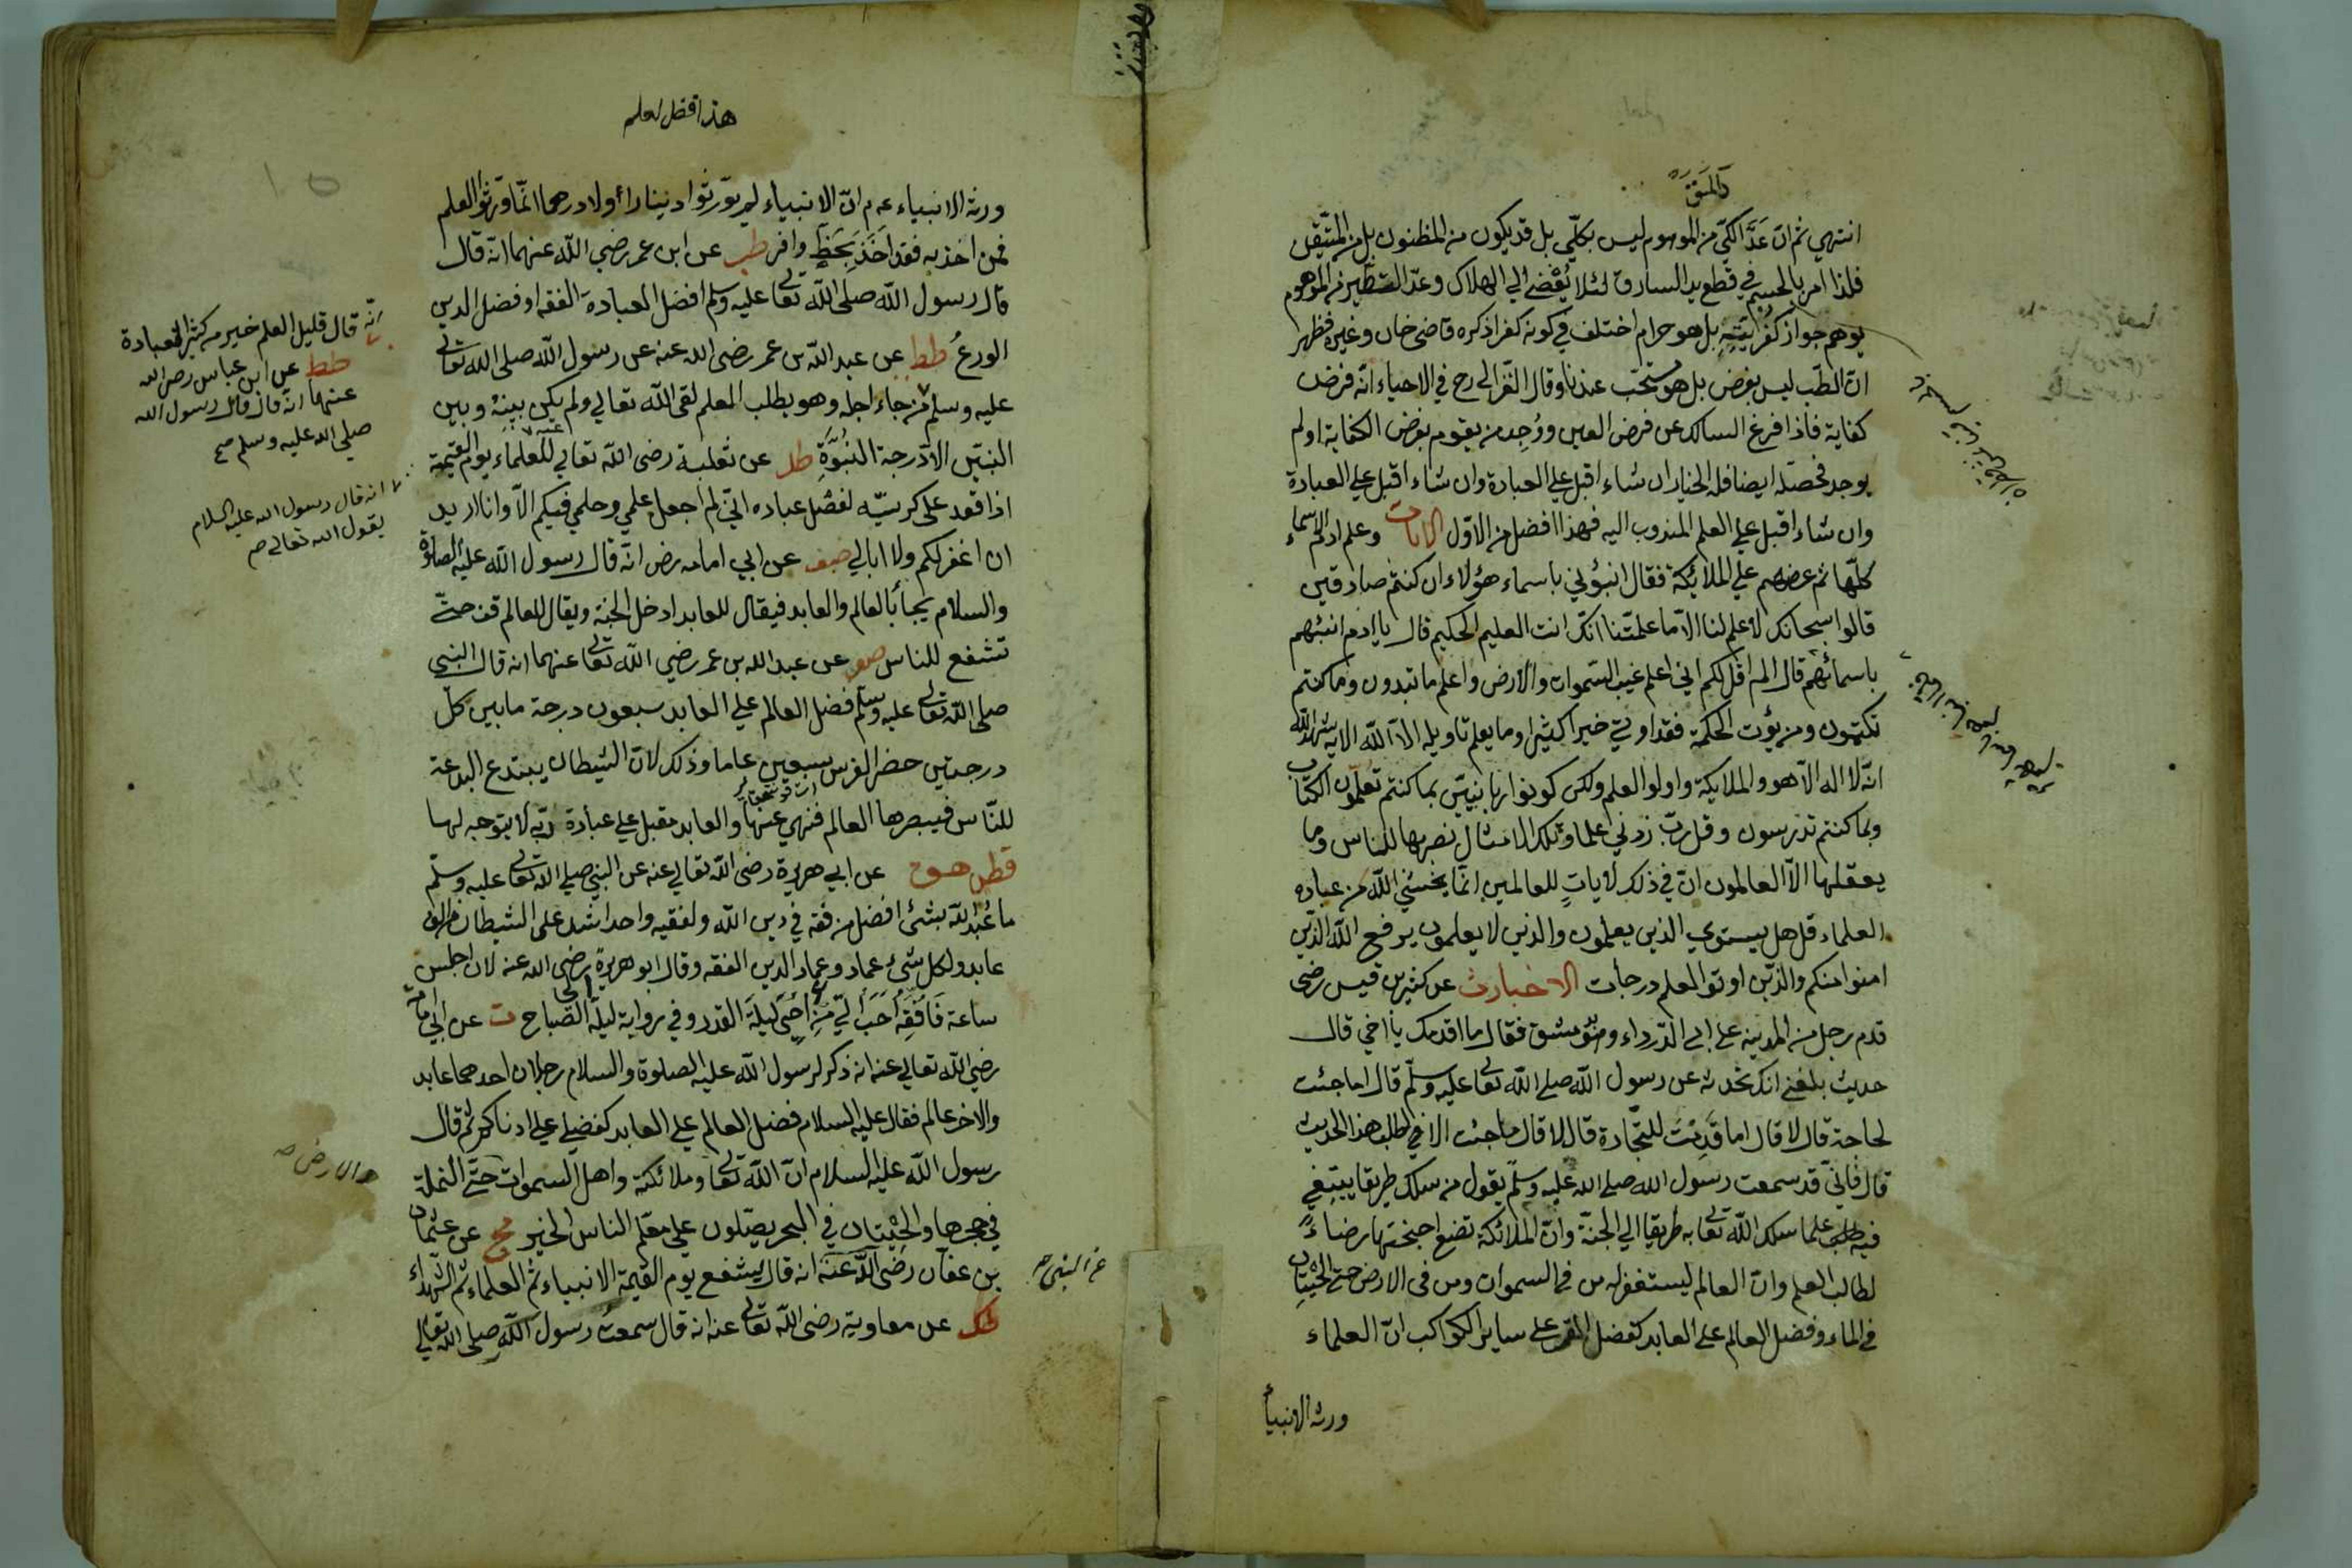 كالمتيقن
انتهى ثم ان عد الكي من الموهوم ليس بكلي بل قد يكون من المظنون بل من المتيقن
فلذا امر بالحسم في قطع يد السارق لئلا يفضي الي الهلاك وعد التطير من الموهوم
يوهم جواز كفرانيته بل هو حرام اختلف في كونه كفرا ذكره قاضي خان وغيره فظهر
ان الطب ليس بفرض بل هو مستحب عندنا وقال الغزالي رح في الاحياء انه فرض
كفاية فاذا فرغ السالك عن فرض العين ووجد من يقوم بفرض الكفاية او لم
يوجد فحصله ايضا فله الخيار ان شاء اقبل علي العبادة وان شاء اقبل علي العبادة
وان شاء اقبل علي العلم المندوب اليه فهذا افضل من الاول الايات وعلم ادم الاسماء
كلها ثم عرضهم علي الملائكة فقال انبؤني باسماء هؤلاء ان كنتم صادقين
قالوا سبحانك لا علم لنا الا ما علمتنا انك انت العليم الحكيم قال يا ادم انبئهم
باسمائهم قال الم اقل لكم اني اعلم غيب السموات والارض واعلم ما تبدون وما كنتم
تكتمون ومن يؤت الحكمة فقد اوتي خيرا كثيرا وما يعلم تاويله الا الله الاية شهد الله
انه لا اله الا هو والملايكة واولو العلم ولكن كونوا ربانيين بما كنتم تعلمون الكتاب
وبما كنتم تدرسون وقل رب زدني علما وتلك الامثال نضربها للناس وما
يعقلها الا العالمون ان في ذلك لايات للعالمين انما يخشي الله من عباده
العلماء قل هل يستوي الذين يعلمون والذين لا يعلمون يرفع الله الذين
امنوا منكم والذين اوتوا العلم درجات الاخبار ت عن كثير بن قيس رضي
قدم رجل من المدينة علي ابي الدرداء وهو بدمشق فقال ما اقدمك يا اخي قال
حديث بلغني انك تحدثه عن رسول الله صلي الله تعا عليه وسلم قال اما جئت
لحاجة قال لا قال اما قدمت للتجارة قال لا قال ما جئت الا في طلب هذا الحديث
قال فاني قد سمعت رسول الله صلي الله عليه وسلم يقول من سلك طريقا يبتغي
فيه علما سلك الله تعا به طريقا الي الجنة وان الملائكة تضع اجنحتها رضاء
لطالب العلم وان العالم ليستغفر له من في السموات ومن في الارض حتي الحيتان
في الماء وفضل العالم علي العابد كفضل القمر علي ساير الكواكب ان العلماء
ورثة الانبيأ
هذا فضل العلم
ورثة الانبياء عه م ان الانبياء لم يورثوا دينارا ولا درهما انما ورثوا العلم
فمن اخذ به فقد اخذ بحظ وافر طب عن ابن عمر رضي الله عنهما انه قال
قال رسول الله صلى الله تعا عليه وسلم افضل العبادة الفقه وفضل الدين
الورع طط عن عبد الله بن عمر رضي الله عنه عن رسول الله صلى الله تعا
عليه وسلم من جاء اجله وهو يطلب العلم لقي الله تعالي ولم يكن بينه وبين
النبيين الا درجة النبوة طك عن ثعلبة رضي الله تعالي عنه للعلماء يوم القيمة
اذا قعد على كرسيه لفصل عباده اني لم اجعل علمي وحلمي فيكم الا وانا اريد
ان اغفر لكم ولا ابالي صف عن ابي امامه رض انه قال رسول الله عليه الصلوة
والسلام يجيأ بالعالم والعابد فيقال للعابد ادخل الجنة ويقال للعالم قف حتي
تشفع للناس صف عن عبد الله بن عمر رضي الله تعا عنهما انه قال النبي
صلى الله تعا عليه وسلم فضل العالم علي العابد سبعون درجة ما بين كل
درجتين حضر الفرس سبعين عاما وذلك لان الشيطان يبتدع البدعة
للناس فيبصرها العالم فنهي عنها والعابد مقبل علي عبادة ربه لا يتوجه لها
قطن هق عن ابي هريرة رضي الله تعالي عنه عن النبي صلي الله تعا عليه وسلم
ما عبد الله بشئ افضل من فقه في دين الله ولفقيه واحد اشد على الشيطان من الف
عابد ولكل شئ عماد وعماد الدين الفقه وقال ابو هريرة رضي الله عنه لان اجلس
ساعة فافقه احب الي من احي ليلة القدر وفي رواية ليلة الي الصباح ت عن ابي امامة
رضي الله تعالي عنه انه ذكر لرسول الله عليه الصلوة والسلام رجلان احدهما عابد
والاخر عالم فقال عليه السلام فضل العالم علي العابد كفضلي علي ادناكم ثم قال
رسول الله عليه السلام ان الله تعا وملائكته واهل السموات حتي النملة
في جحرها والحيتان في البحر يصلون علي معلم الناس الخير مج عن عثمان
بن عفان رضي الله عنه انه قال يشفع يوم القيمة الانبياء ثم العلماء ثم الشهداء
طك عن معاوية رضي الله تعا عنه انه قال سمعت رسول الله صلى الله تعالي
انه قال قليل العلم خير من كثير العبادة
طط عن ابن عباس رضي الله
عنهما انه قال قال رسول الله
صلي الله عليه وسلم صح
انه قال رسول الله عليه السلام
يقول الله تعالي صح
والارض صح
عن النبي صح